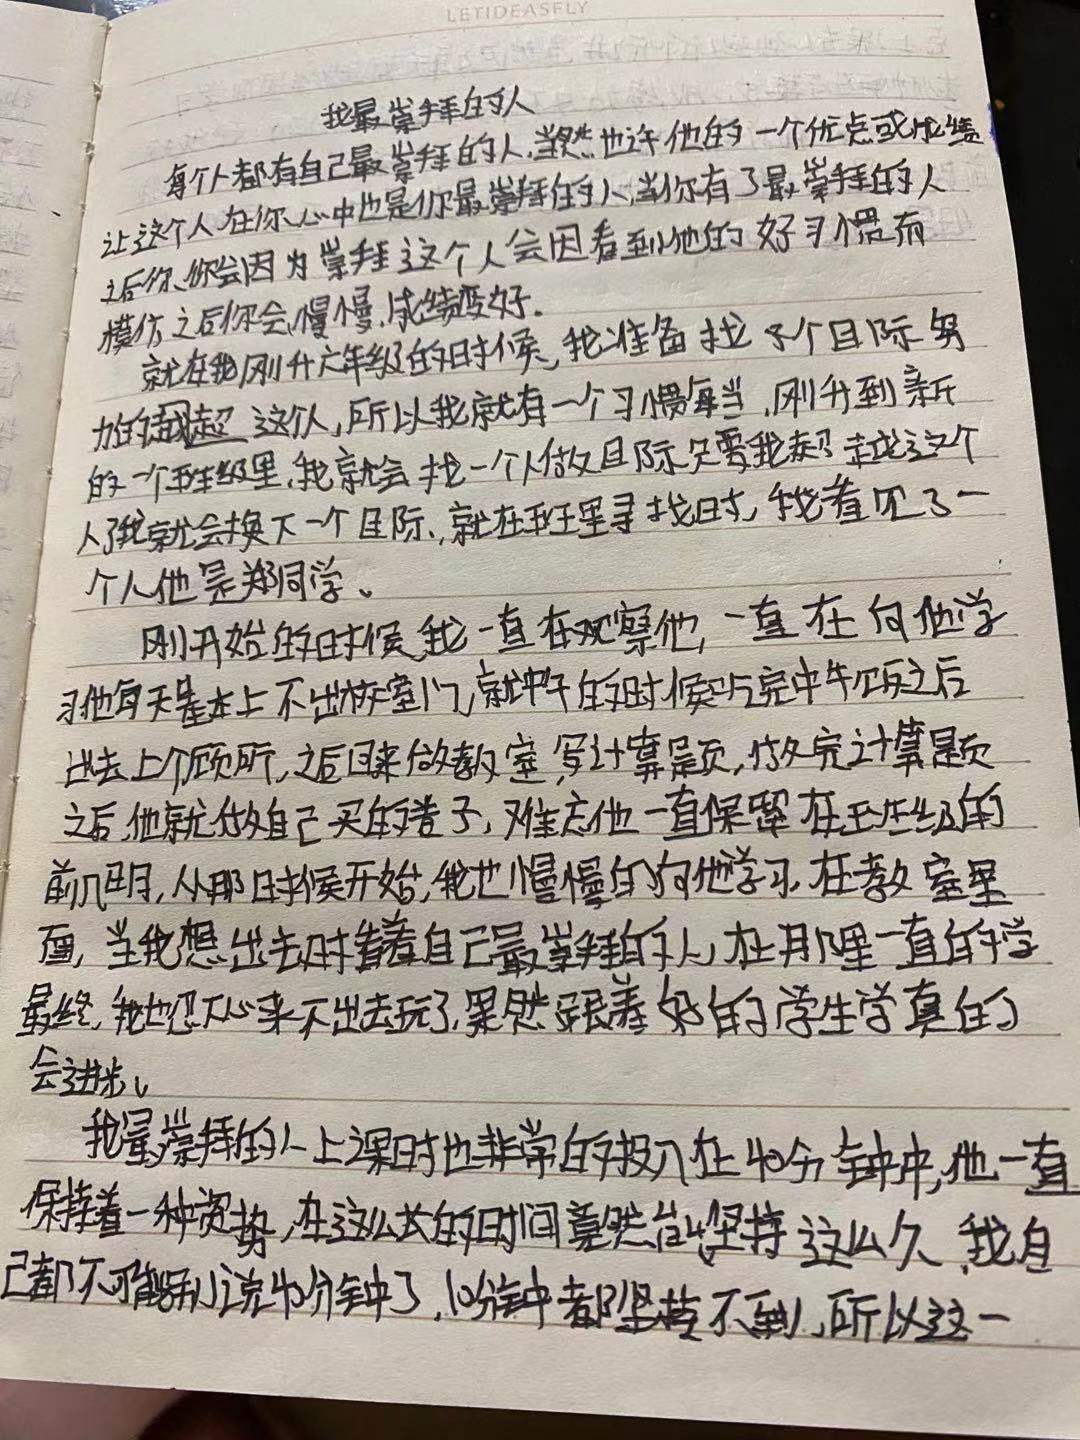 LETIDEASFLY
我最崇拜的人
每个人都有自己最崇拜的人,当然也许他的一个优点或成绩
让这个人在你心中也是你最崇拜的人,当你有了最崇拜的人
之后你、你会因为崇拜这个人会因看到他的好习惯而
模仿之后你会慢慢,成绩变好.
就在我刚升六年级的时候,我准备找 个目际努
力的 超这个人,所以我就有一个习惯每当,刚升到新
的一个班级里,我就会找一个人做目际只要我超越这个
人了我就会换下一个目际,就在班里寻找时,我看见了一
个人他是郑同学。
刚开始的时候我一直在观察他,一直在向他学
习他每天基本上不出教室门,就中午的时候吃完中午饭之后
出去上个厕所,之后回来做教室,写计算题,做完计算题
之后,他就做自己买的卷子,难忘他一直保留在班级的
前几明,从那时候开始,我也慢慢的向他学习,在教室里
面,当我想出去时看着自己最崇拜的人,在那里一直的学
最终,我也忍下心来不出去玩了,果然跟着好的学生学真的
会进步。
我最崇拜的人上课时也非常的投入在40分钟中,他一直
保持着一种资势,在这么长的时间竟然能坚持这么久,我自
己都不可能别说40分钟了,10分钟都坚持不到,所以这一